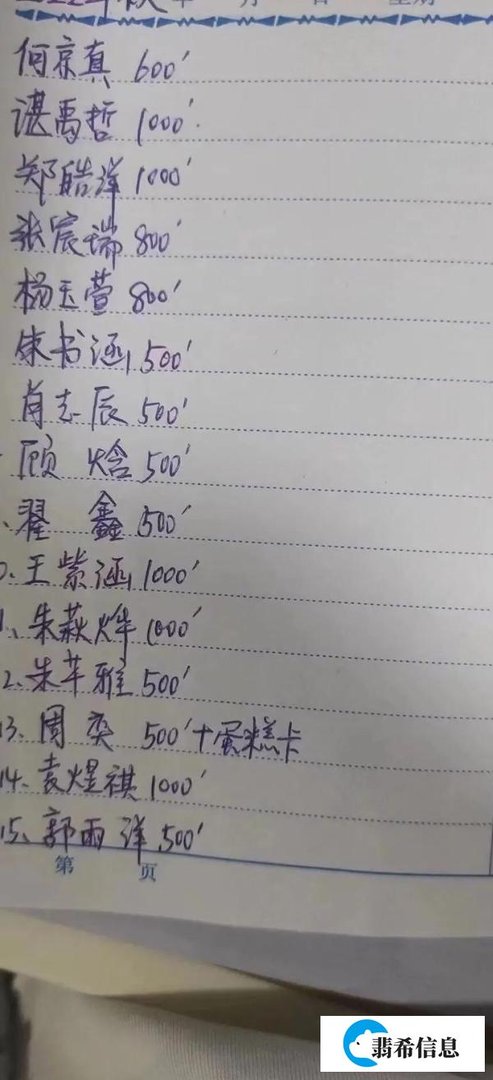 何京真 600'
谌禹哲 1000'
郑皓洋 1000'
张宸瑞 800'
杨玉萱 800'
朱书涵 500'
肖志辰 500'
顾焓 500'
翟鑫 500'
0、王紫涵 1000'
1、朱萩烨 1000'
2、朱芊雅 500'
13、周奕 500'+蛋糕卡
14、袁煜祺 1000'
15、郭雨洋 500'
第 页
翡希信息